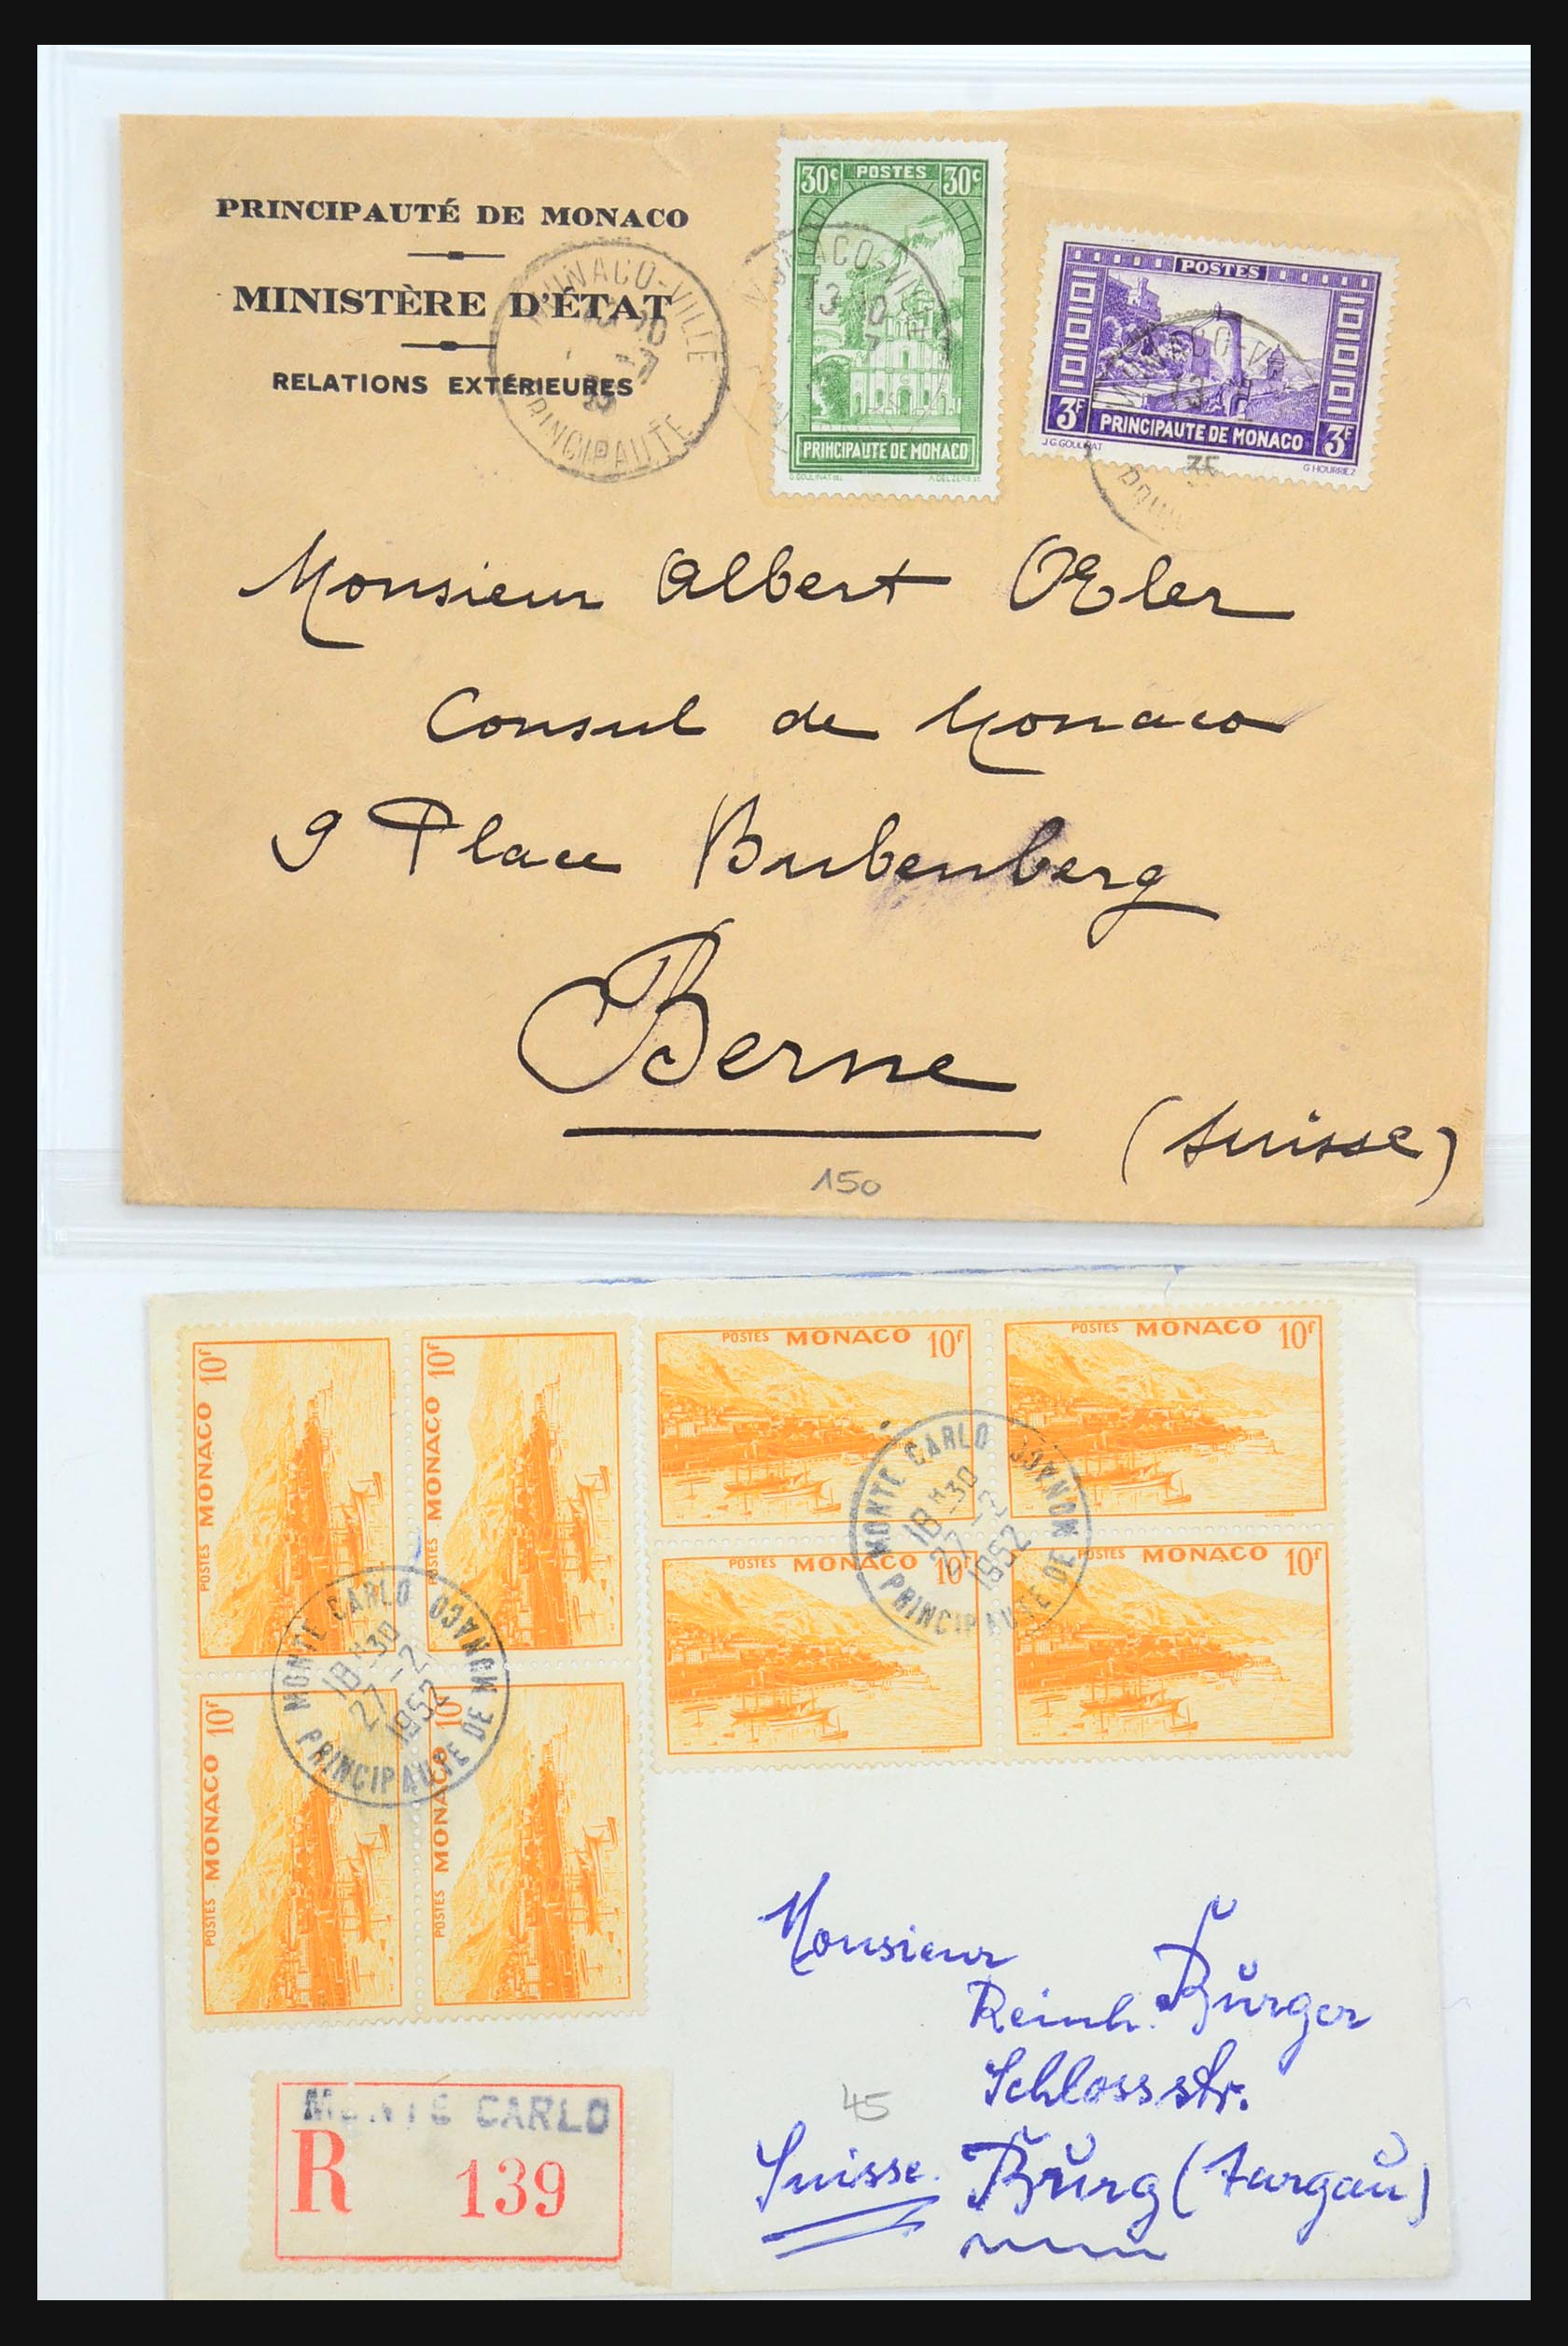 PRINCIPAUTÉ DE MONACO
MINISTÈRE D'ÉTAT
RELATIONS EXTÉRIEURES
MONACO-VILLE
PRINCIPAUTÉ
30c POSTES 30c
MONACO-VILLE
13 10
PRINCIPAUTE DE MONACO
POSTES
MONACO-V
13
3F PRINCIPAUTE DE MONACO 3F
J.G.GOULINAT G HOURRIEZ
35
Monsieur Albert OEler
Consul de Monaco
9 Place Bubenberg
Berne
(Suisse)
150
POSTES MONACO 10F
POSTES MONACO 10F
POSTES MONACO 10F
POSTES MONACO 10F
POSTES MONACO 10F
POSTES MONACO 10F
POSTES MONACO 10F
POSTES MONACO 10F
MONTE CARLO
18H30
27-2
1952
PRINCIPAUTE DE MONACO
MONTE CARLO
18H30
27-2
1952
PRINCIPAUTE DE MONACO
Monsieur
Reinh. Bŭrger
Schlossstr.
Suisse. Bŭrg (Aargaŭ)
45
MONTE CARLO
R 139